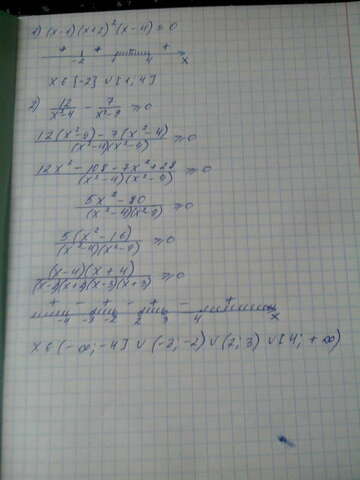 1) (x-1)(x+2)²(x-4) ≤ 0
+ + +
-2 1 4 x
x ∈ {-2} ∪ [1; 4]
2) 12/(x²-4) - 7/(x²-9) ≥ 0
(12(x²-9) - 7(x²-4))/((x²-4)(x²-9)) ≥ 0
(12x² - 108 - 7x² + 28)/((x²-4)(x²-9)) ≥ 0
(5x² - 80)/((x²-4)(x²-9)) ≥ 0
5(x²-16)/((x²-4)(x²-9)) ≥ 0
(x-4)(x+4)/((x-2)(x+2)(x-3)(x+3)) ≥ 0
+ - + - + - +
-4 -3 -2 2 3 4 x
x ∈ (-∞; -4] ∪ (-3; -2) ∪ (2; 3) ∪ [4; +∞)